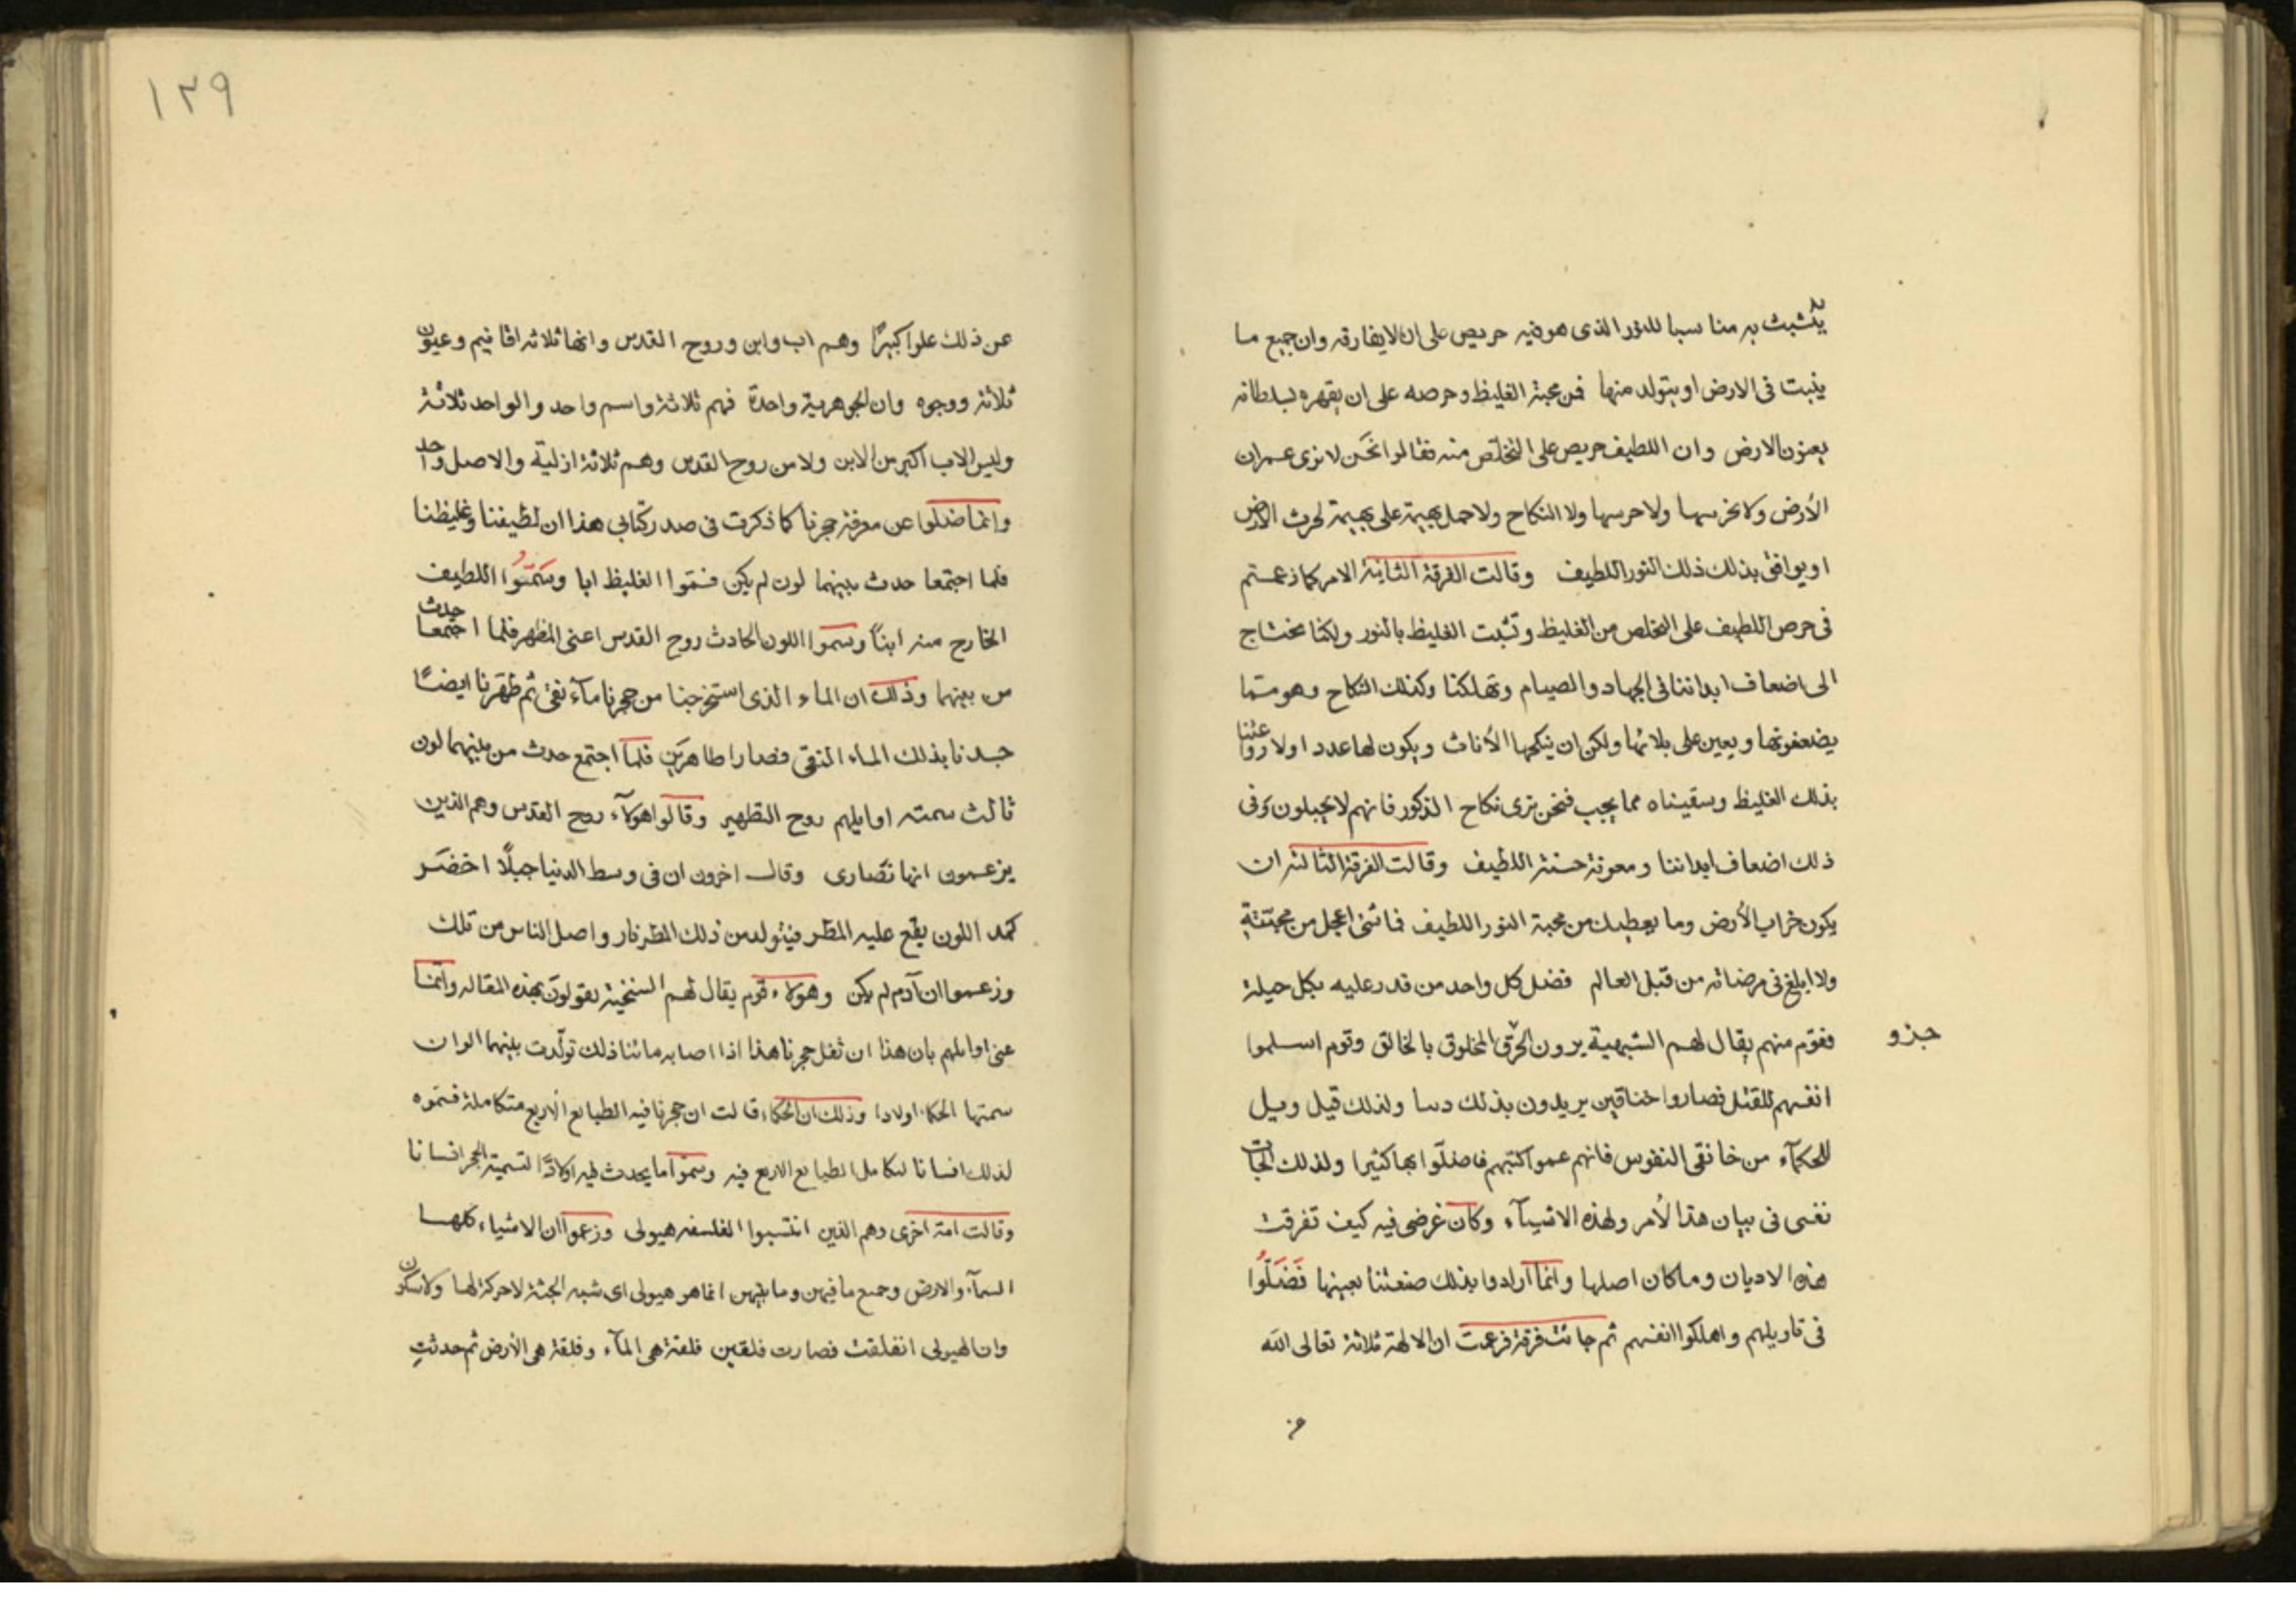 يتشبث به مناسبا للنور الذى هو فيه حريص على ان لا يفارقه وان جميع ما
ينبت فى الارض او يتولد منها فمن محبة الغليظ وحرصه على ان يقهره بسلطانه
يعنون الارض وان اللطيف حريص على التخلص منه فقالوا نحن لا نرى عمران
الأرض ولا غرسها ولا حرسها ولا النكاح ولا حمل بهيمة على بهيمة لحرث الارض
او يوافق بذلك ذلك النور اللطيف وقالت الفرقة الثانية الامر كما زعمتم
فى حرص اللطيف على التخلص من الغليظ وتثبت الغليظ بالنور ولكنا نحتاج
الى اضعاف ابداننا فى الجهاد والصيام وتهلكنا وكذلك النكاح وهو مما
يضعفونها ويعين على بلائها ولكن ان ينكحها الأناث ويكون لها عدد اولاد وا عثنا
بذلك الغليظ وسقيناه مما يجب فنحن نرى نكاح الذكور فانهم لا يحبلون وفى
ذلك اضعاف ابداننا ومعونة حسنة اللطيف وقالت الفرقة الثالثة ان
يكون خراب الأرض وما يعطبك من محبة النور اللطيف فما شئ اعجل من محبته
ولا ابلغ فى مرضاته من قبل العالم فضل كل واحد من قدر عليه بكل حيلة
جزو
فقوم منهم يقال لهم الشبهية يرون الحرق المخلوق بالخالق وقوم اسلموا
انفسهم للقتل فصاروا خناقين يريدون بذلك دسا ولذلك قيل ويل
للحكمآء من خانقى النفوس فانهم عموا كتبهم فاضلّوا بها كثيرا ولذلك الجات
نفسى فى بيان هذا الأمر ولهذه الاشيآء وكان غرضى فيه كيف تفرقت
هذه الاديان وما كان اصلها وانما ارادوا بذلك صنعتنا بعينها فَضَلّوُا
فى تاويلهم واهلكوا انفسهم ثم جائت فرقة فزعمت ان الالهة ثلاثة تعالى الله
عن
١٢٩
عن ذلك علوا كبيرًا وهم اب وابن وروح القدس وانها ثلاثه اقانيم وعيون
ثلاثة ووجوه وان الجوهرية واحدة فهم ثلاثة واسم واحد والواحد ثلاثة
وليس الاب اكبر من الابن ولا من روح القدس وهم ثلاثة ازلية والاصل واحد
وانما ضلوا عن معرفة حجرنا كما ذكرت فى صدر كتابى هذا ان لطيفنا وغليظنا
فلما اجتمعا حدث بينهما لون لم يكن فسمّوا الغليظ ابا وسَمّوُا اللطيف
الخارج منه ابنًا وسموا اللون الحادث روح القدس اعنى المظهر فلما اجتمعا حدث
من بينهما وذلك ان الماء الذى استخرجنا من حجرنا مآء نقى ثم طهّرنا ايضًا
جسدنا بذلك الماء المنقى فصارا طاهرين فلما اجتمع حدث من بينهما لون
ثالث سمته اوايلهم روح التطهير وقالوا هولآء روح القدس وهم الذين
يزعمون انها نصارى وقال اخرون ان فى وسط الدنيا جبلًا اخضر
كمد اللون يقع عليه المطر فيتولد من ذلك المطر نار واصل الناس من تلك
وزعموا ان آدم لم يكن وهولاء قوم يقال لهم السنخية يقولون بهذه المقاله وانما
عنى اوايلهم بان هذا ان ثفل حجرنا هذا اذا اصابه مائنا ذلك تولّدت بينهما الوان
سمتها الحكماء اولادا وذلك ان الحكماء قالت ان حجرنا فيه الطبايع الاربع متكاملة فسمّوه
لذلك انسانا لتكامل الطبايع الاربع فيه وسمّوا ما يحدث فيه اولادًا لتسمية الحجر انسانا
وقالت امة اخرى وهم الذين انتسبوا الفلسفه هيولى وزعموا ان الاشياء كلها
السمآء والارض وجميع ما فيهن وما بينهن انما هو هيولى اى شبه الجثة لا حركة لها ولا سكون
وان الهيولى انفلقت فصارت فلقتين فلقة هى المآء وفلقة هى الأرض ثم حدثت